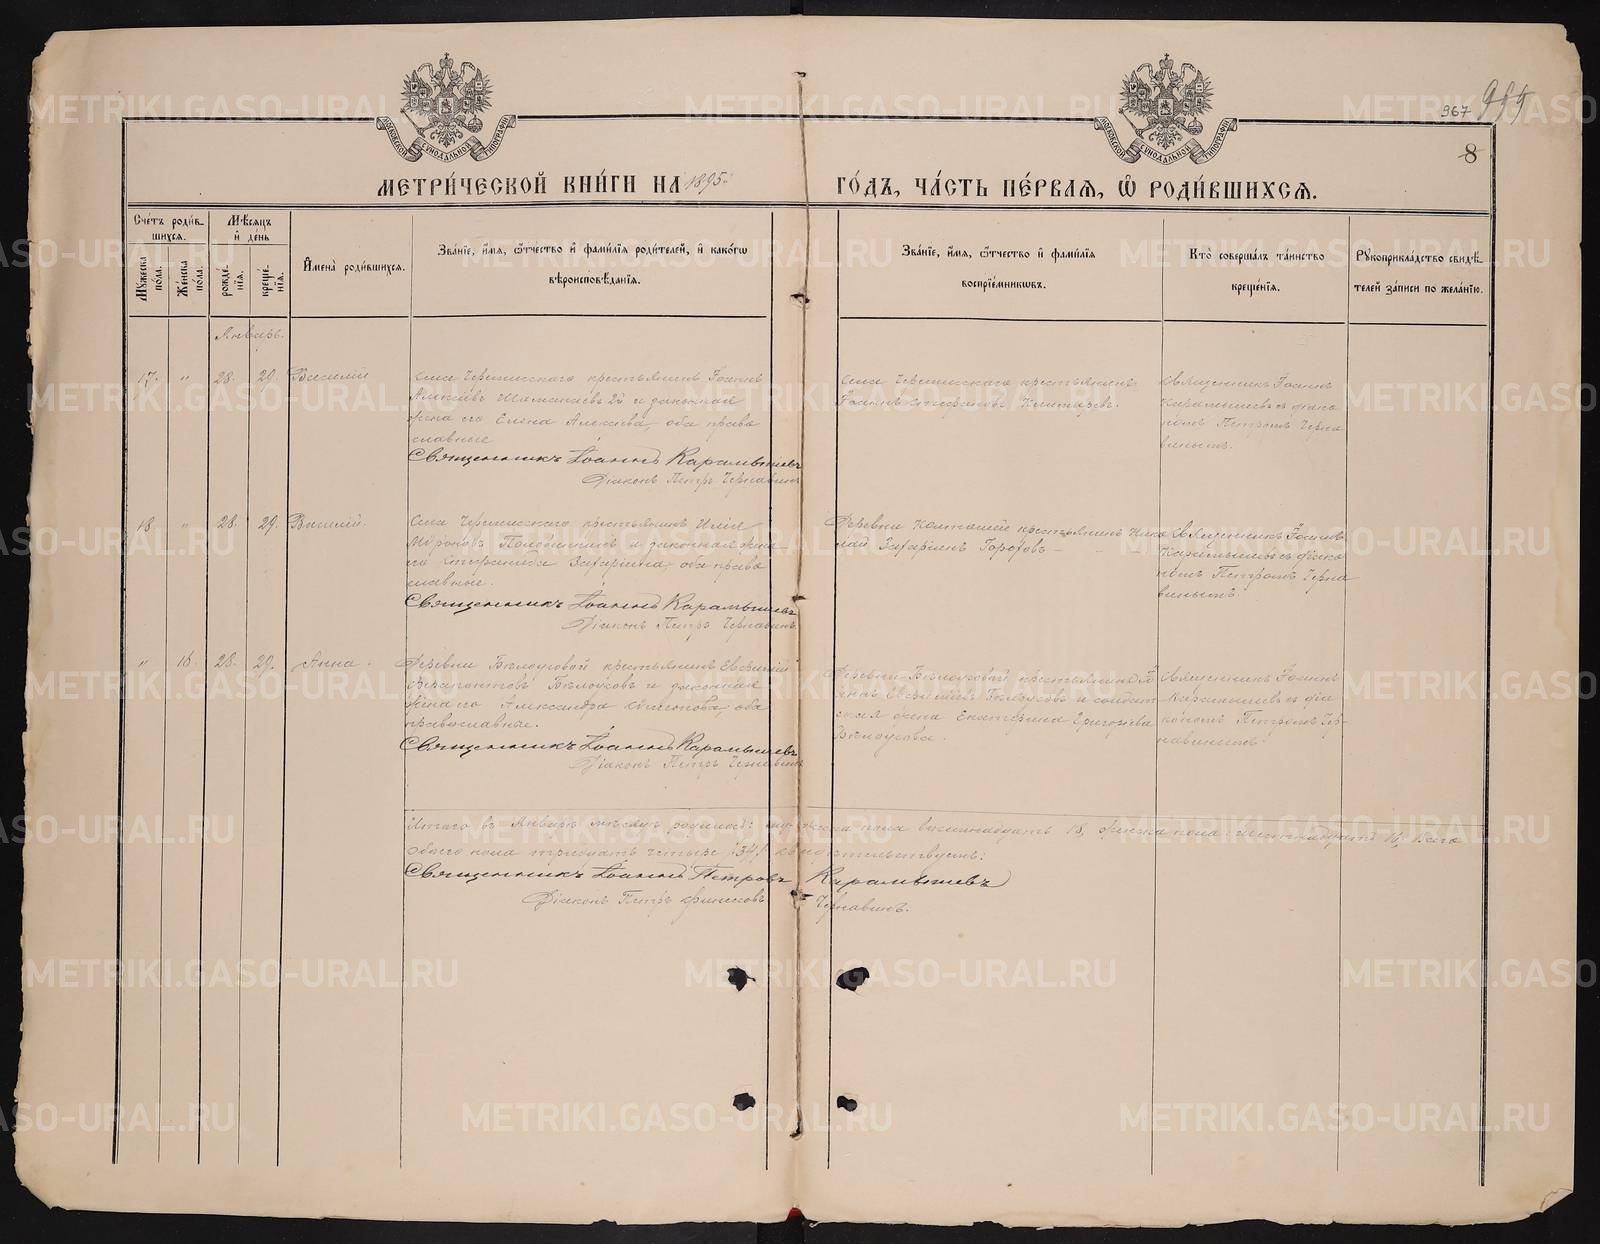 367
8
МОСКОВСКОЙ СѴНОДАЛЬНОЙ ТИПОГРАФІИ
МОСКОВСКОЙ СѴНОДАЛЬНОЙ ТИПОГРАФІИ
МЕТРИ́ЧЕСКОЙ КНИ́ГИ НА 1895
ГО́ДЪ, ЧА́СТЬ ПЕ́РВАЯ, Ѽ РОДИ́ВШИХСЯ.
Сче́тъ роди́вшихся.
Мꙋ́жеска по́ла.
Же́нска по́ла.
Мѣ́сяцъ и҆ де́нь
рожде́нїя.
креще́нїя.
И҆мена̀ роди́вшихся.
Зва́нїе, и҆́мя, ѻ҆́тчество и҆ фами́лїя роди́телей, и҆ како́гѡ
вѣроисповѣ́данїя.
Зва́нїе, и҆́мя, ѻ҆́тчество и҆ фами́лїя
воспрїе́мниковъ.
Кто̀ соверша́лъ та́инство
креще́нїя.
Рꙋкоприкла́дство свидѣ́
телей за́писи по жела́нїю.
Январь.
17. " 28. 29. Василій
Села Черемисскаго крестьянинъ Іоаннъ
жена его Елена Алексѣева, оба право
славные
Священникъ Іоаннъ Карамышевъ
Діаконъ Петръ Чернавинъ
Села Черемисскаго крестьянинъ
Іоаннъ Стефановъ
Священникъ Іоаннъ
Карамышевъ съ діако
номъ Петромъ Черна
винымъ.
18 " 28. 29. Василій.
Села Черемисскаго крестьянинъ Илія
Мироновъ и законная жена
его Стефанида Захаріина, оба право
славные.
Священникъ Іоаннъ Карамышевъ
Діаконъ Петръ Чернавинъ.
Деревни крестьянинъ Нико
лай Захаринъ Гороховъ
Священникъ Іоаннъ
Карамышевъ съ діако
номъ Петромъ Черна
винымъ.
" 16. 28. 29. Анна.
Деревни Бѣлоусовой крестьянинъ Евѳимій
Бѣлоусовъ и законная
жена его Александра Симеонова, оба
православные.
Священникъ Іоаннъ Карамышевъ
Діаконъ Петръ Чернавинъ
Деревни Бѣлоусовой крестьянинъ
Евѳиміевъ Бѣлоусовъ и солдат
ская жена Екатерина Григорьева
Бѣлоусова.
Священникъ Іоаннъ
Карамышевъ съ діа
кономъ Петромъ Чер-
навинымъ.
Итого въ Январѣ мѣсяцѣ родилось: мужеска пола восемнадцать 18, женска пола шестнадцать 16, всего
обоего пола тридцать четыре (34). Свидѣтельствуемъ:
Священникъ Іоаннъ Петровъ Карамышевъ
Діаконъ Петръ Чернавинъ.
METRIKI.GASO-URAL.RU